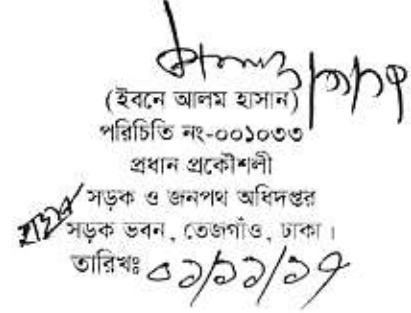 (ইবনে আলম হাসান)
পরিচিতি নং-০০১০৩৩
প্রধান প্রকৌশলী
সড়ক ও জনপথ অধিদপ্তর
সড়ক ভবন, তেজগাঁও, ঢাকা।
তারিখঃ ০১/১১/১৭